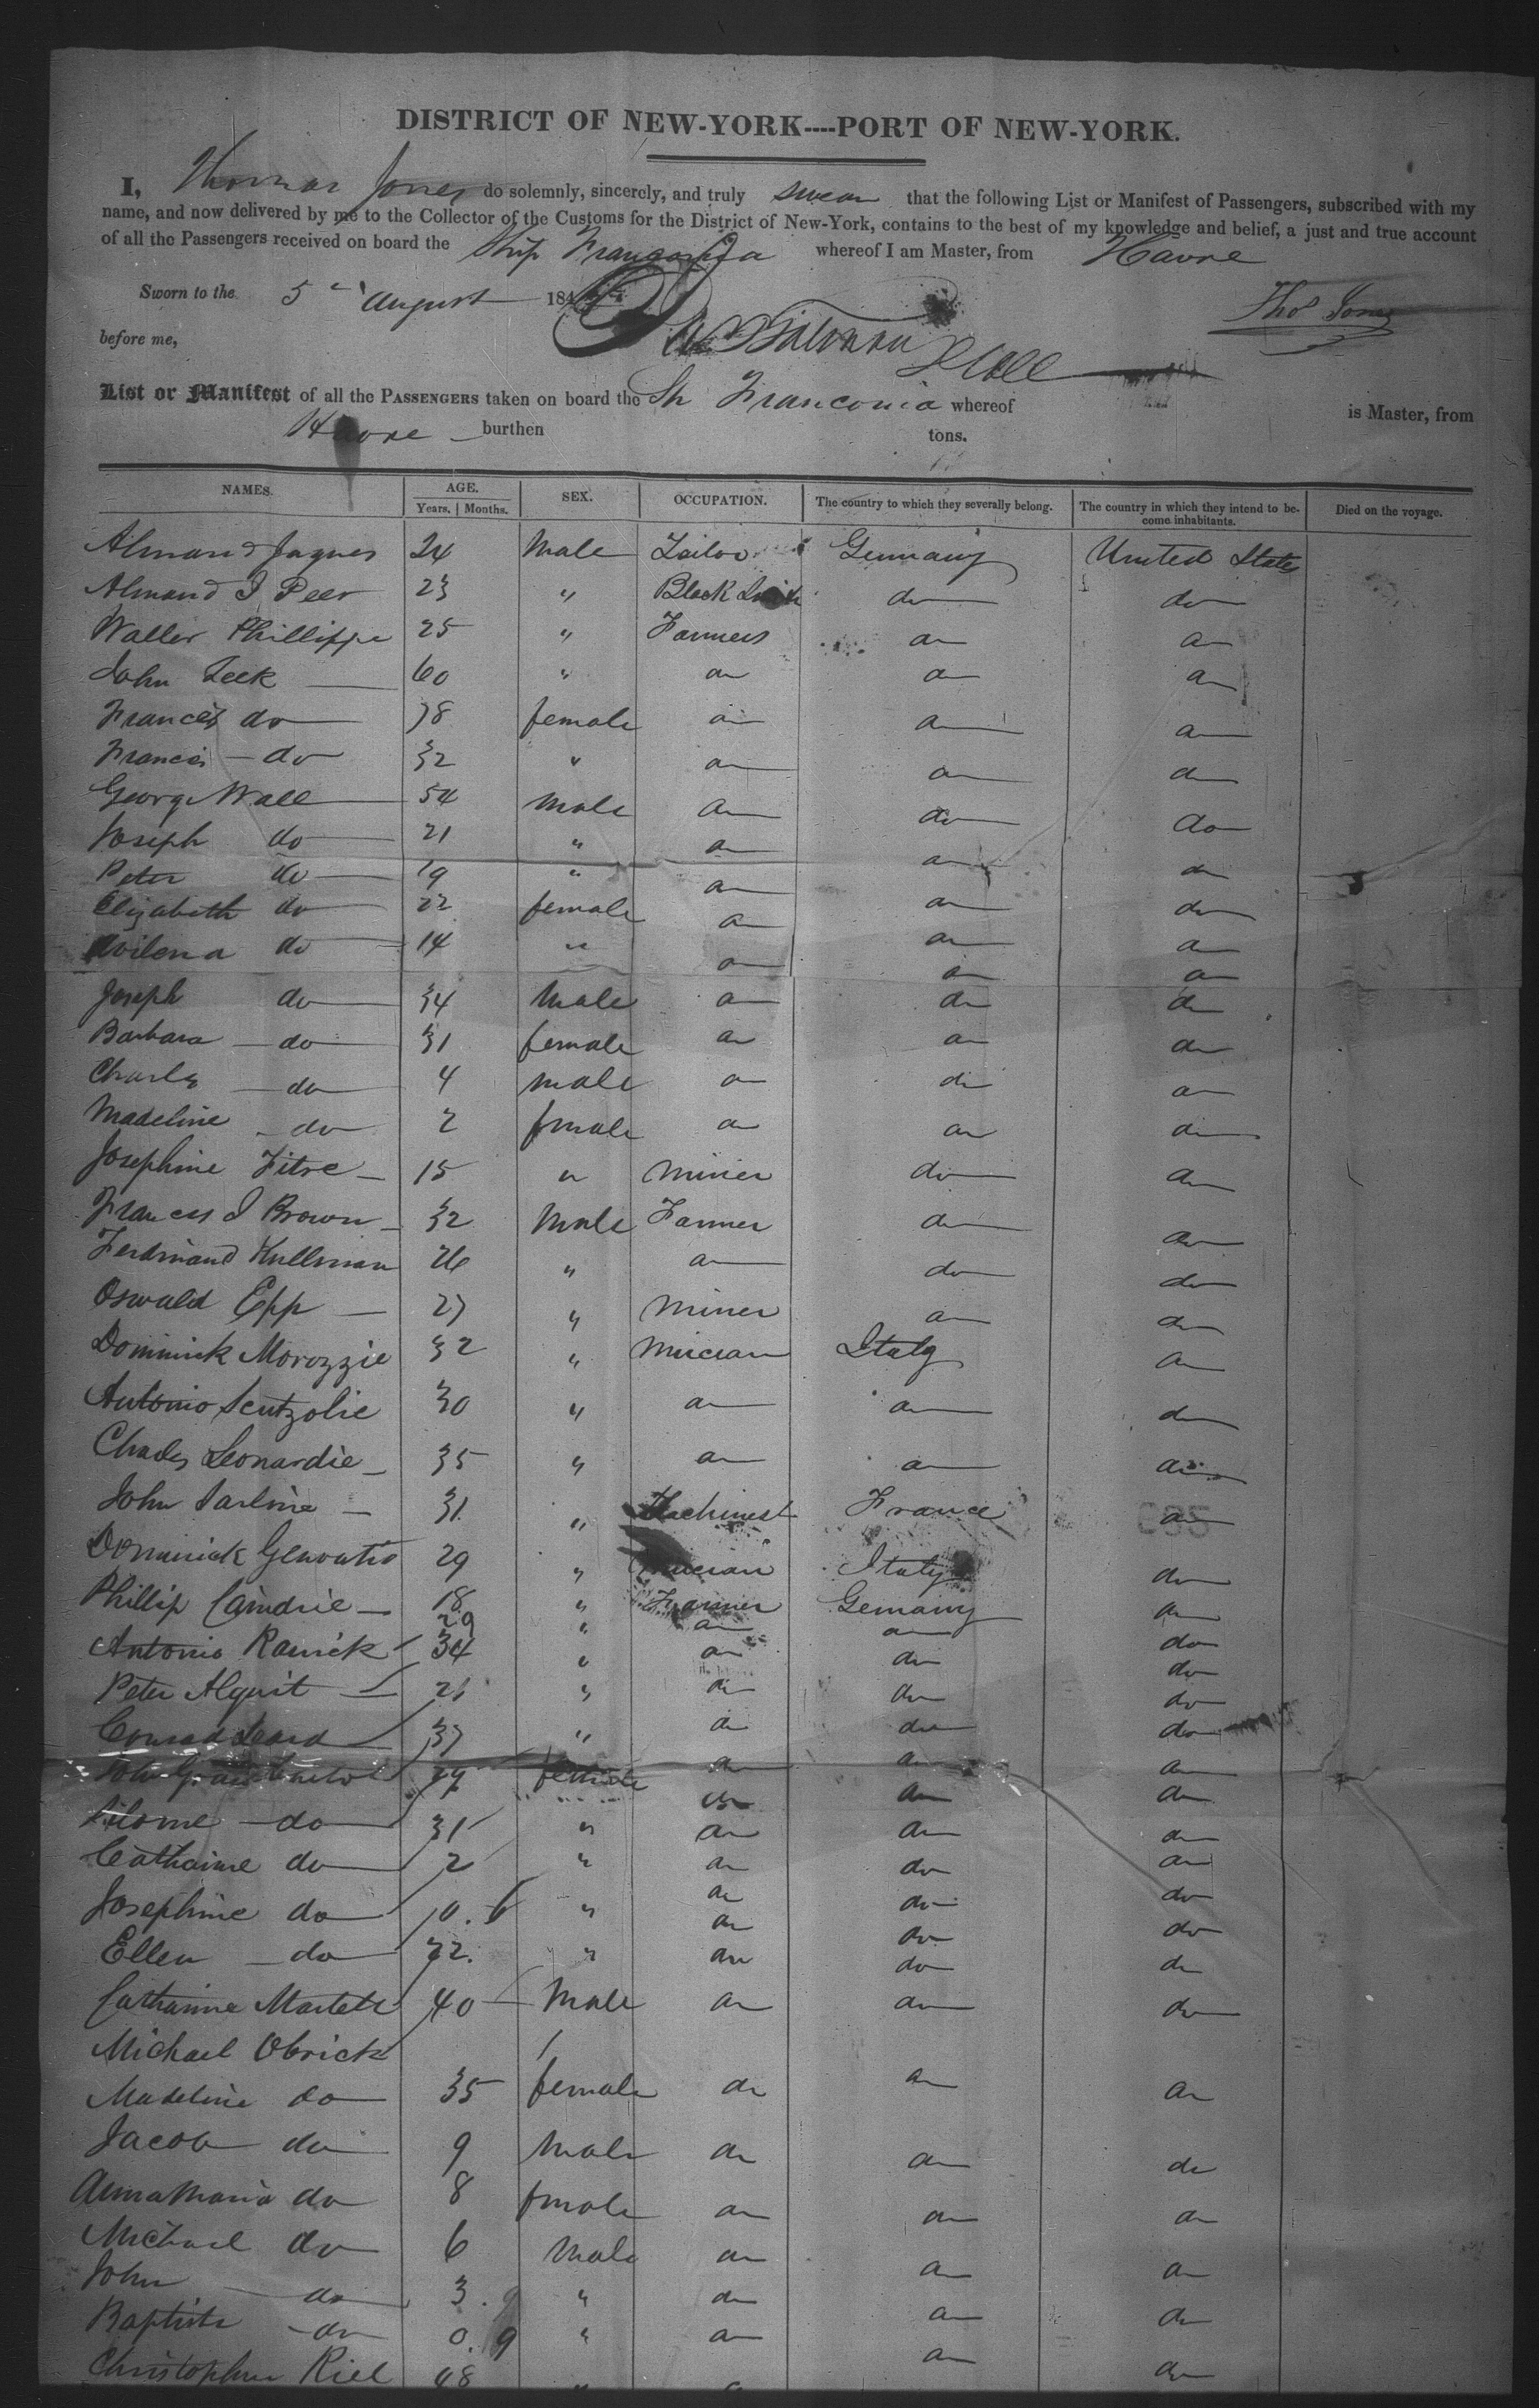 DISTRICT OF NEW-YORK----PORT OF NEW-YORK.
I, Thomas Jones do solemnly, sincerely, and truly swear that the following List or Manifest of Passengers, subscribed with my
name, and now delivered by me to the Collector of the Customs for the District of New-York, contains to the best of my knowledge and belief, a just and true account
of all the Passengers received on board the Ship Franconia whereof I am Master, from Havre
Sworn to the 5 August 184
Thos Jones
before me,
List or Manifest of all the PASSENGERS taken on board the Sh Franconia whereof is Master, from
Havre burthen tons.
NAMES. AGE. SEX. OCCUPATION. The country to which they severally belong. The country in which they intend to be- Died on the voyage.
Years. Months. come inhabitants.
Almand Jaques 24 Male Tailor Germany United States
Almand J Peer 23 " Black Smith do do
Walter Phillippe 25 " Farmers do do
John Zeek 60 " do do do
Frances do 78 female do do do
Francis do 32 " do do do
George Wall 54 Male do do do
Joseph do 21 " do do do
Peter do 19 " do do do
Elizabeth do 22 female do do do
do 14 " do do do
Joseph do 34 Male do do do
Barbara do 31 female do do do
Charles do 4 male do do do
Madeline do 2 female do do do
Josephine Fitre 15 " Miner do do
Frances J Brown 32 Male Farmer do do
Ferdinand Kullman 26 " do do do
Oswald Epp 27 " Miner do do
Dominick Morozzie 32 " Mucian Italy do
Antonio Sentzolie 30 " do do do
Charles Leonardie 35 " do do do
John Sarline 31 " Machinest France do
Dominick 29 " Mucian Italy do
Phillip Camdrie 18 " Farmer Gemany do
29 " do do do
Antonio Ranick 34 " do do do
Peter Alquit 21 " do do do
Conrad Seard 37 " do do do
John female do do do
do 31 " do do do
Catharine do 2 " do do do
Josephine do 10. 6 " do do do
Ellen do 22. " do do do
Catharine 40 Male do do do
Michael Obrick
Madeline do 35 female do do do
Jacob do 9 Male do do do
Anna Maria do 8 female do do do
Michael do 6 Male do do do
John do 3. 9 " do do do
Baptiste do 0. 9 " do do do
Christopher Riel 48 "